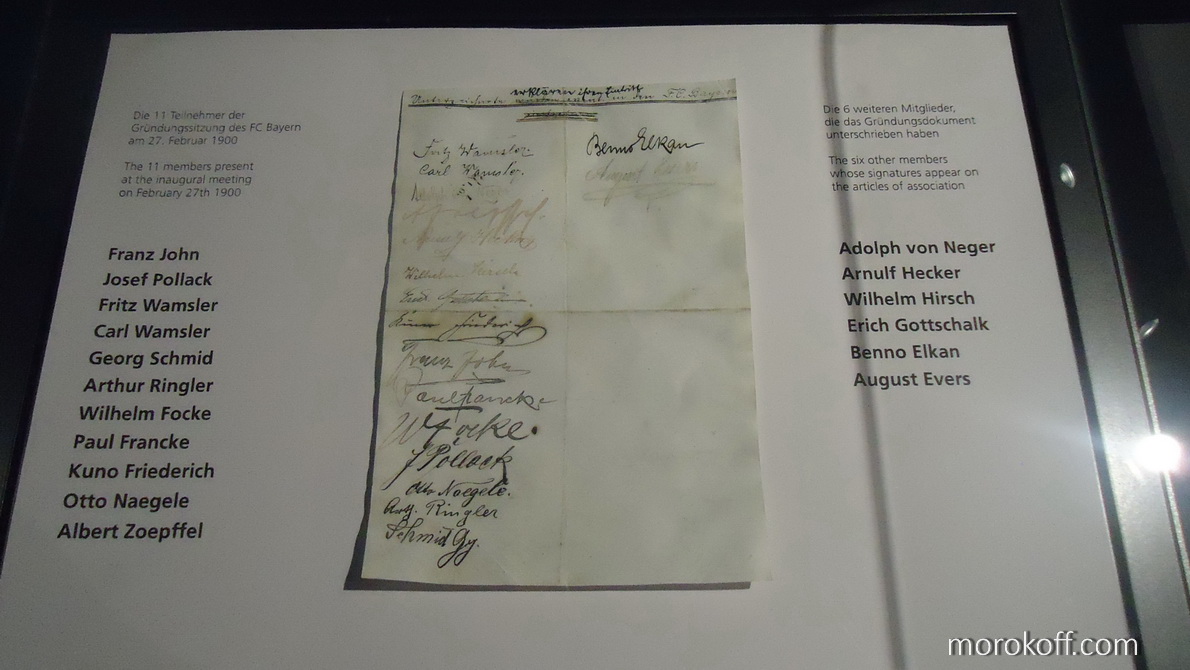 Die 11 Teilnehmer der
Gründungssitzung des FC Bayern
am 27. Februar 1900
The 11 members present
at the inaugural meeting
on February 27th 1900
Franz John
Josef Pollack
Fritz Wamsler
Carl Wamsler
Georg Schmid
Arthur Ringler
Wilhelm Focke
Paul Francke
Kuno Friederich
Otto Naegele
Albert Zoepffel
erklären ihren Eintritt
in den FC. Bayern
Fritz Wamsler.
Carl Wamsler.
Wilhelm Hirsch
Kuno Friederich
Franz John
Paul Francke
W Focke.
J Pollack
Otto Naegele.
Arth. Ringler
Schmid Gg.
Benno Elkan
August Evers
Die 6 weiteren Mitglieder,
die das Gründungsdokument
unterschrieben haben
The six other members
whose signatures appear on
the articles of association
Adolph von Neger
Arnulf Hecker
Wilhelm Hirsch
Erich Gottschalk
Benno Elkan
August Evers
morokoff.com